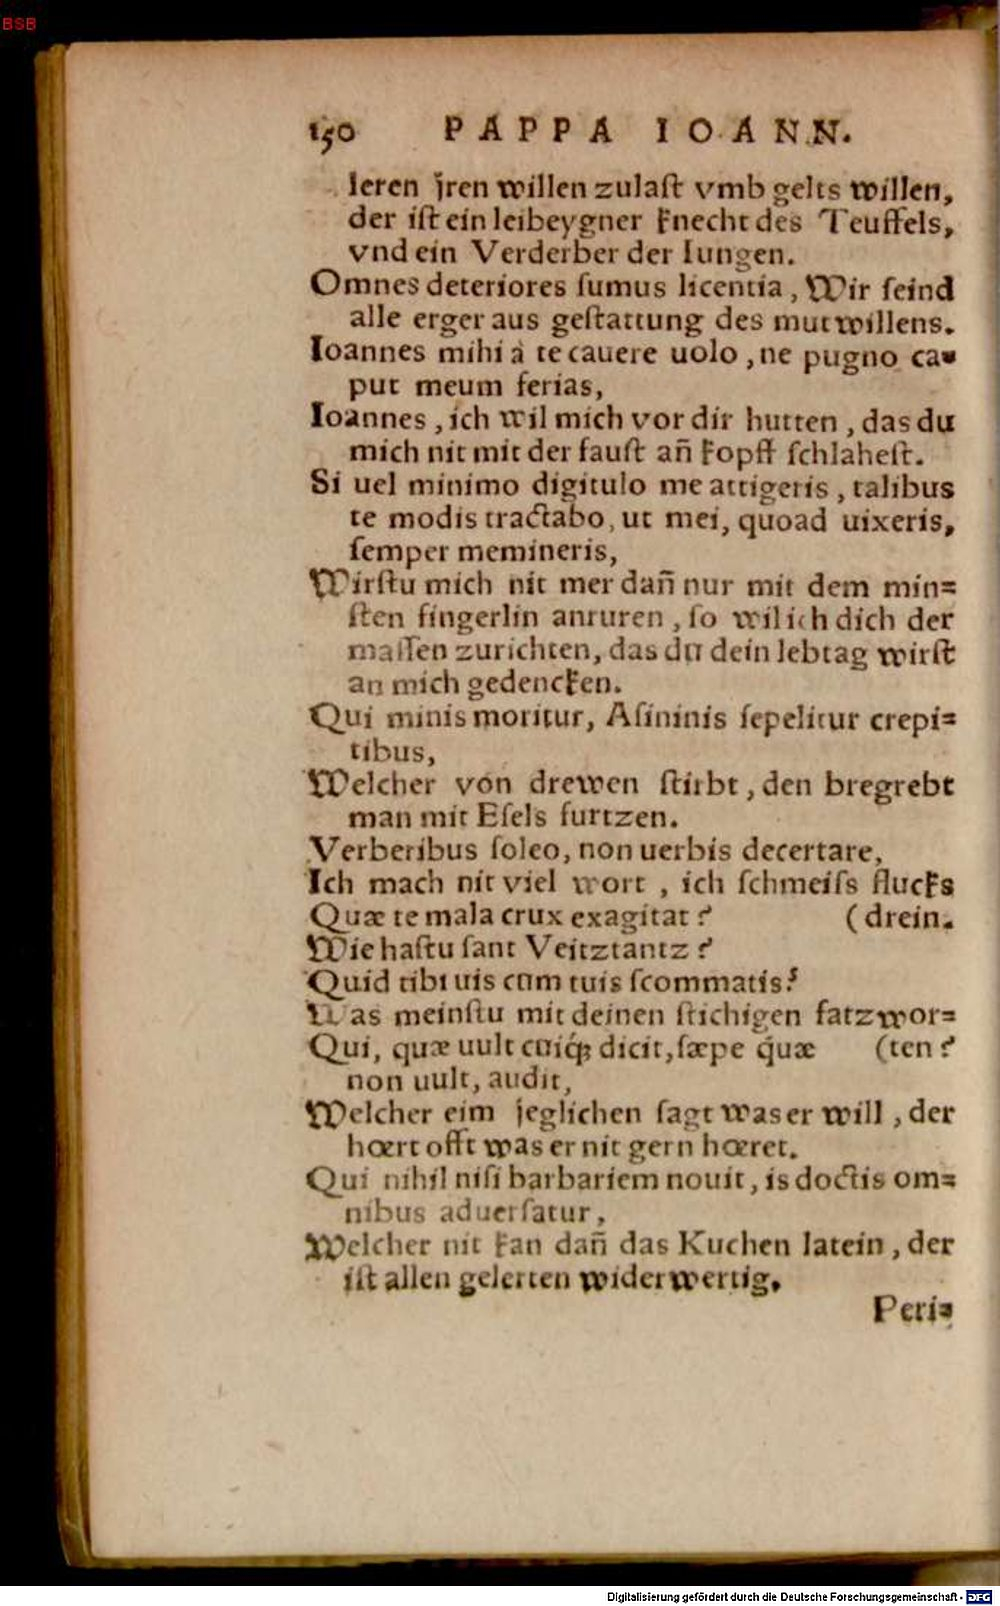 BSB
150 PAPPA IOANN.
leren jren willen zulaſt vmb gelts willen,
der iſt ein leibeygner knecht des Teuffels,
vnd ein Verderber der Iungen.
Omnes deteriores ſumus licentia, Wir ſeind
alle erger aus geſtattung des mutwillens.
Ioannes mihi à te cauere uolo, ne pugno ca-
put meum ferias,
Ioannes, ich wil mich vor dir hutten, das du
mich nit mit der fauſt an̄ kopff ſchlaheſt.
Si uel minimo digitulo me attigeris, talibus
te modis tractabo, ut mei, quoad uixeris,
ſemper memineris,
Wirſtu mich nit mer dan̄ nur mit dem min=
ſten fingerlin anruren, ſo wil ich dich der
maſſen zurichten, das du dein lebtag wirſt
an mich gedencken.
Qui minis moritur, Aſininis ſepelitur crepi=
tibus,
Welcher von drewen ſtirbt, den bregrebt
man mit Eſels furtzen.
Verberibus ſoleo, non uerbis decertare,
Ich mach nit viel wort, ich ſchmeiſs flucks
Quæ te mala crux exagitat? (drein.
Wie haſtu ſant Veitztantz?
Quid tibi uis cum tuis ſcommatis?
Was meinſtu mit deinen ſtichigen fatzwor=
Qui, quæ uult cuiq́; dicit, ſæpe quæ (ten?
non uult, audit,
Welcher eim jeglichen ſagt was er will, der
hœrt offt was er nit gern hœret.
Qui nihil niſi barbariem nouit, is doctis om=
nibus aduerſatur,
Welcher nit kan dan̄ das Kuchen latein, der
iſt allen gelerten widerwertig.
Peri=
Digitalisierung gefördert durch die Deutsche Forschungsgemeinschaft - DFG